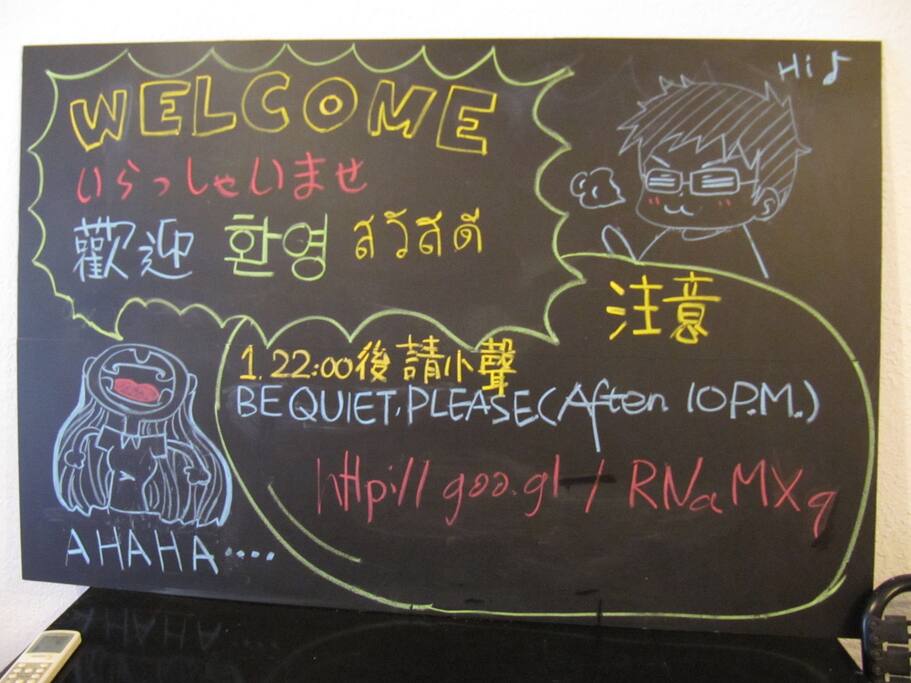 WELCOME
いらっしゃいませ
歡迎 환영 สวัสดี
Hi♪
注意
1. 22:00後請小聲
BE QUIET, PLEASE (After 10 P.M.)
http://goo.gl/RNaMXq
AHAHA····